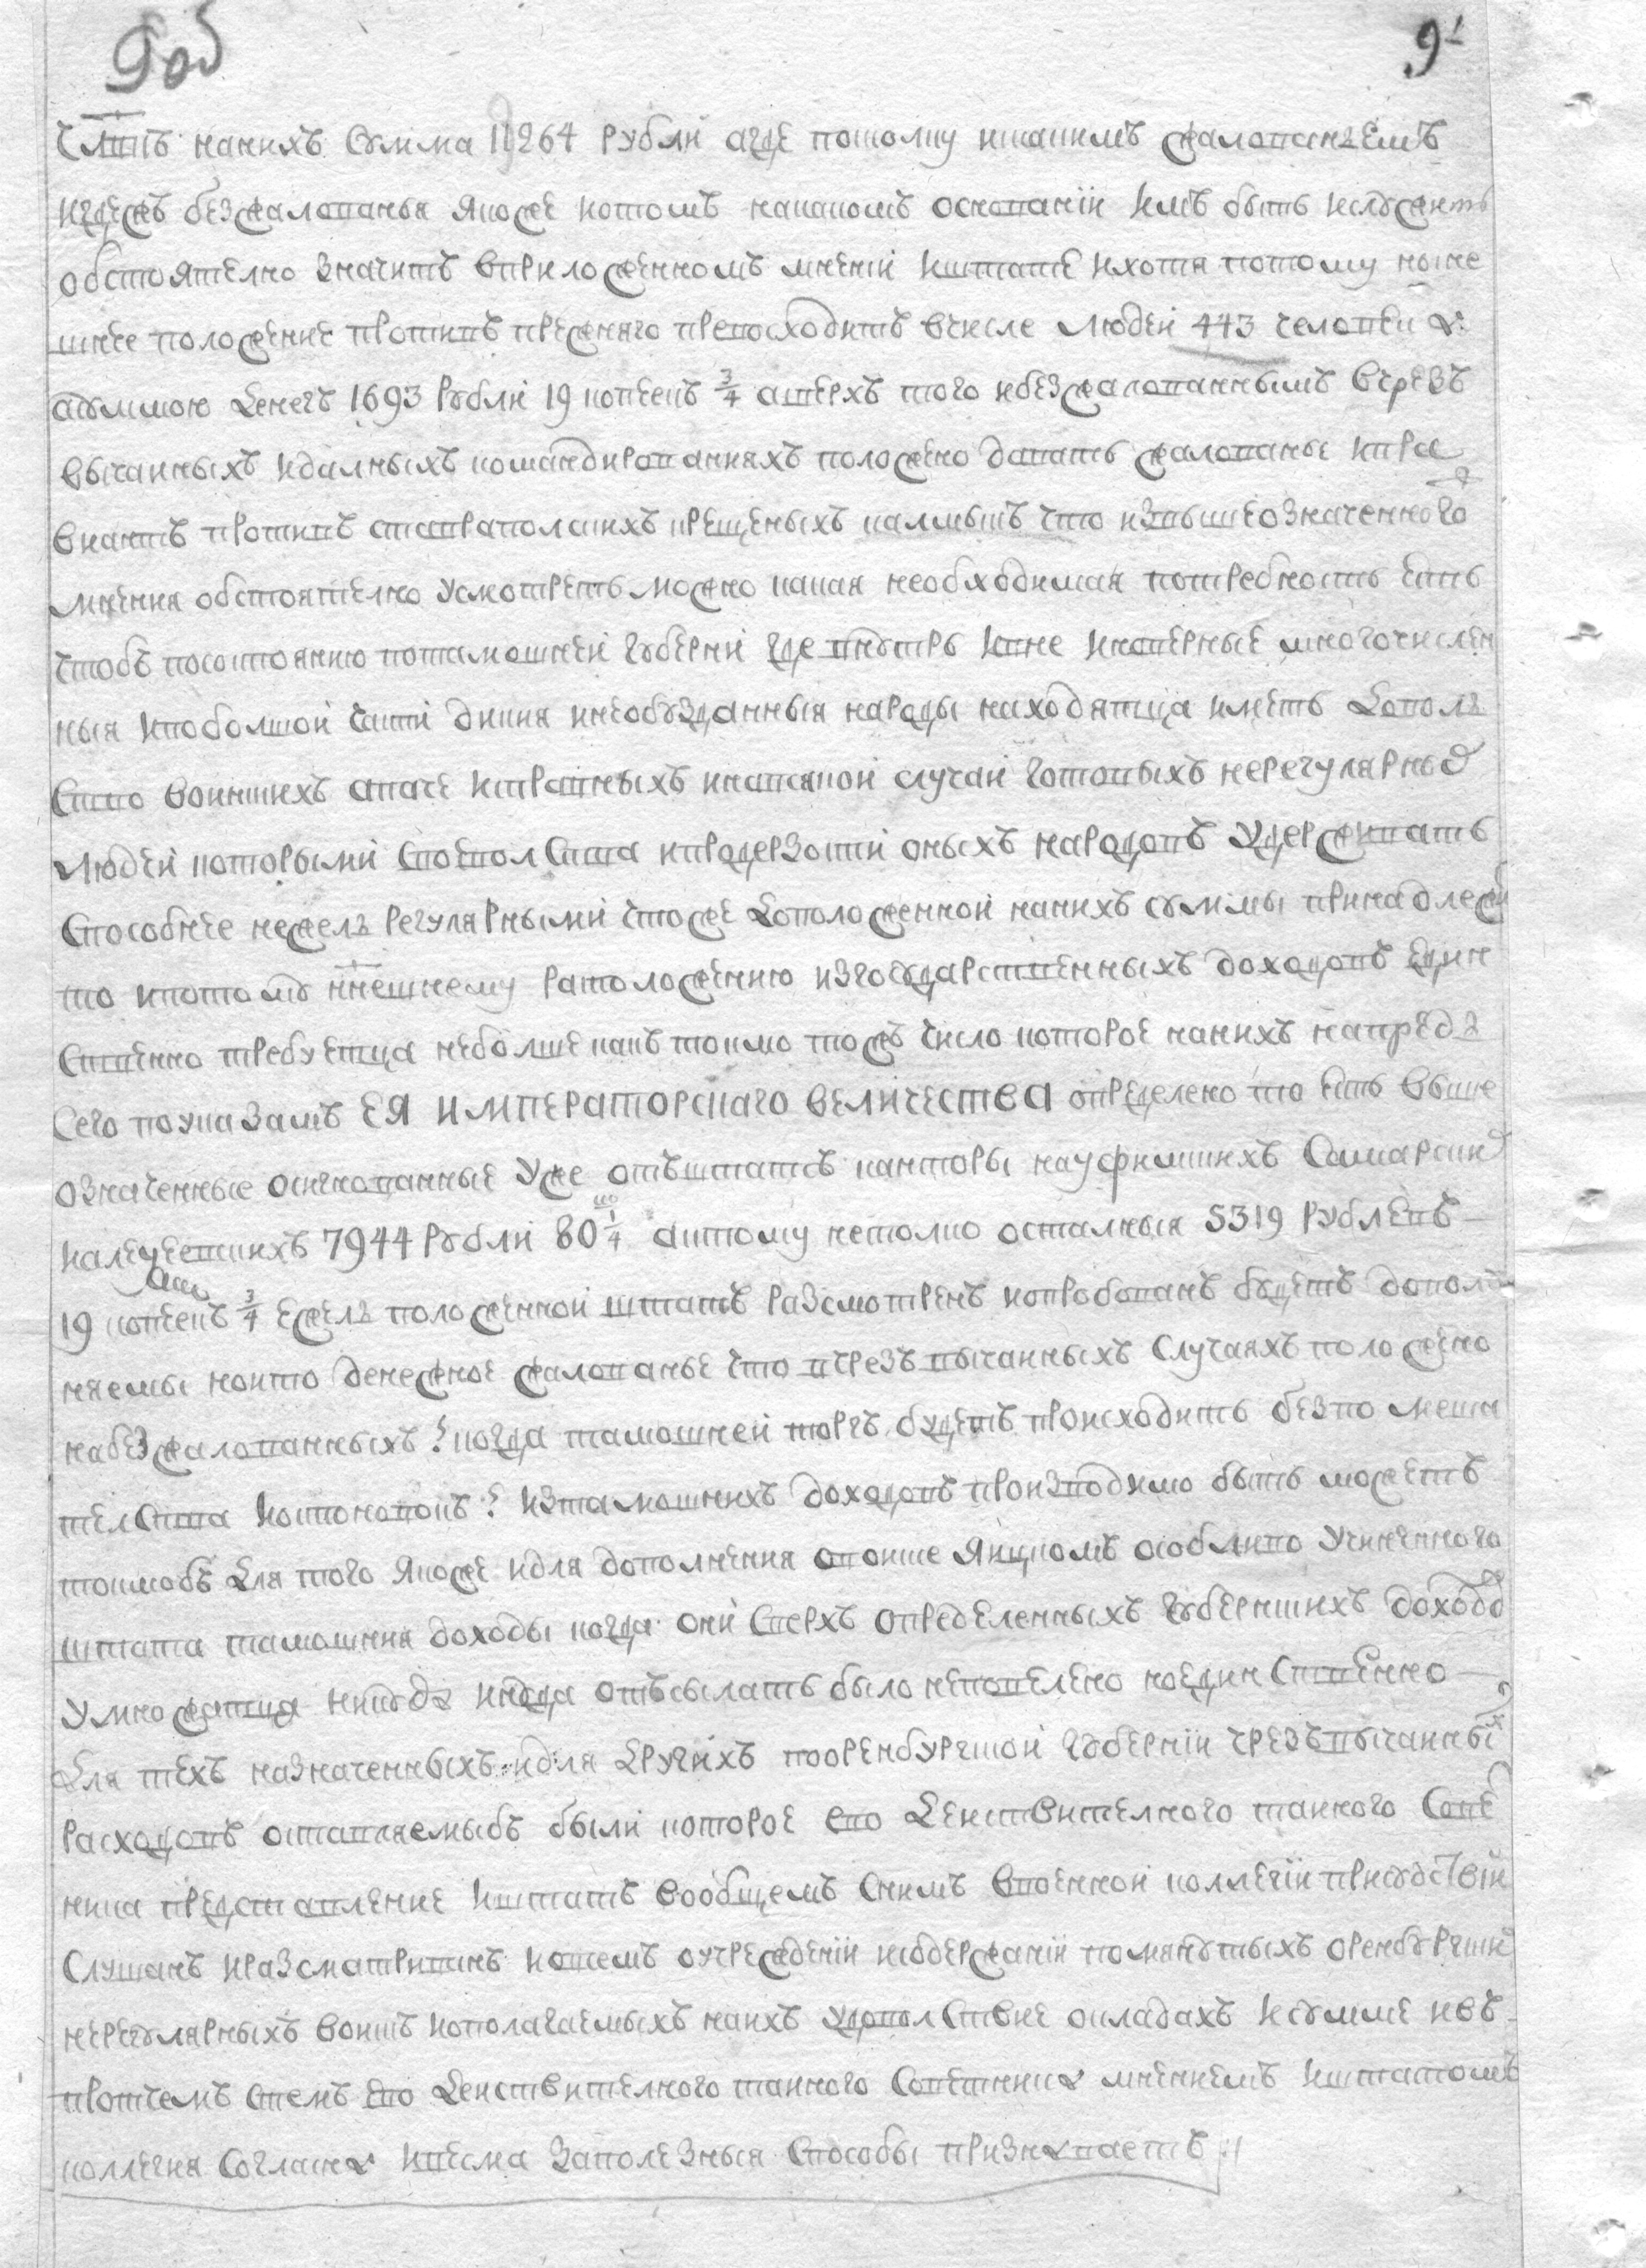 9об 9
есть на них сумма 11264 рубли а где потому и таким жалованьем
и где без жалованья якоже и о том на каком основании им быть и служить
обстоятелно значит в приложенном мнении и штате и хотя потому ныне
шнее положение против прежняго превосходит в числе людей 443 человека
а суммою денег 1693 рубли 19 копеек 3/4 а сверх того и безжалованным в чрез
вычайных и далных командированиях положено давать жалованье и пра
виант против ставрополских крещеных калмык что из вышеозначенного
мнения обстоятелно усмотреть можно какая необходимая потребность есть
чтоб по состоянию тамошней губернии где внутрь и вне иноверные многочислен
ныя и по болшой части дикия и необузданныя народы находятца иметь доволь
ство воинских а паче исправных и на всякой случай готовых нерегулярных
людей которыми своеволства и продерзости оных народов удерживать
способнее нежель регулярными что же до положенной на них суммы принадлежи
то и потому ннешнему расположению из государственных доходов един
ственно требуетца неболше как токмо тож число которое на них напредь
сего по указам ЕЯ ИМПЕРАТОРСКАГО ВЕЛИЧЕСТВА определено то есть выше
означенные окладованные уже от штатс канторы на уфимских самарских
и алексеевских 7944 рубли 80 1/4 а и тому нетолко осталныя 5319 рублев
19 копеек 3/4 ежель положенной штат разсмотрен и опробован будет дополь
няемы но и то денежное жалованье что в чрезвычайных случаях положено
на безжалованных когда тамошней торг будет происходить без помеша
телства и остоновок из тамошних доходов производимо быть может
токмоб для того якоже и для дополнения о войске яицком особливо учиненного
штата тамошния доходы когда они сверх определенных губернских доходов
умножатца никуда отсылать было неповелено но единственно
для тех назначенных и для других по оренбургской губернии чрезвычайных
расходов оставляемыб были которое ево действителного тайного совет
ника представление и штат в общем с ним в военной коллегии присудствии
слушан и разсматриван и о всем о учреждении и содержании помянутых оренбургских
нерегулярных войск и о полагаемых на их удоволствие окладах и сумме и в
протчем с тем ево действителного тайного советника мнением и штатом
коллегия согласна и весма за полезныя способы признавает